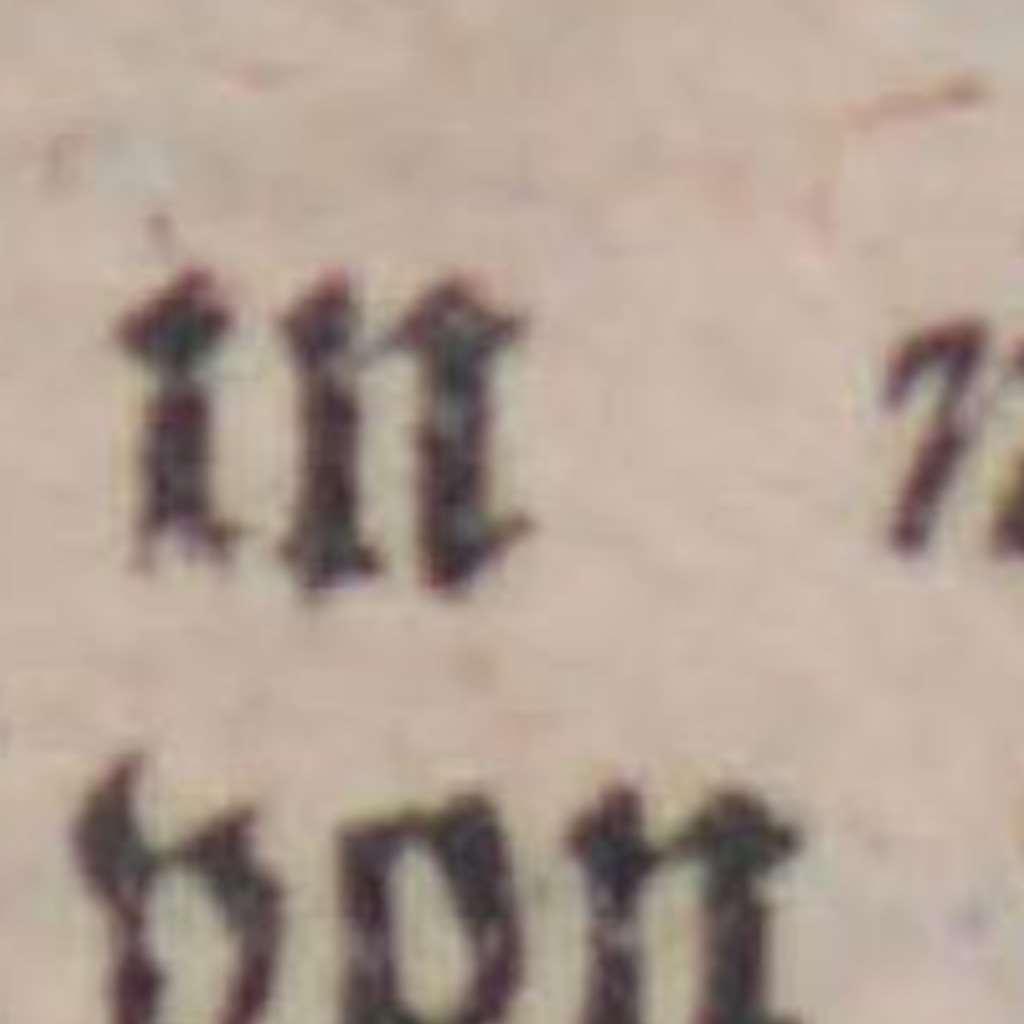 in
von